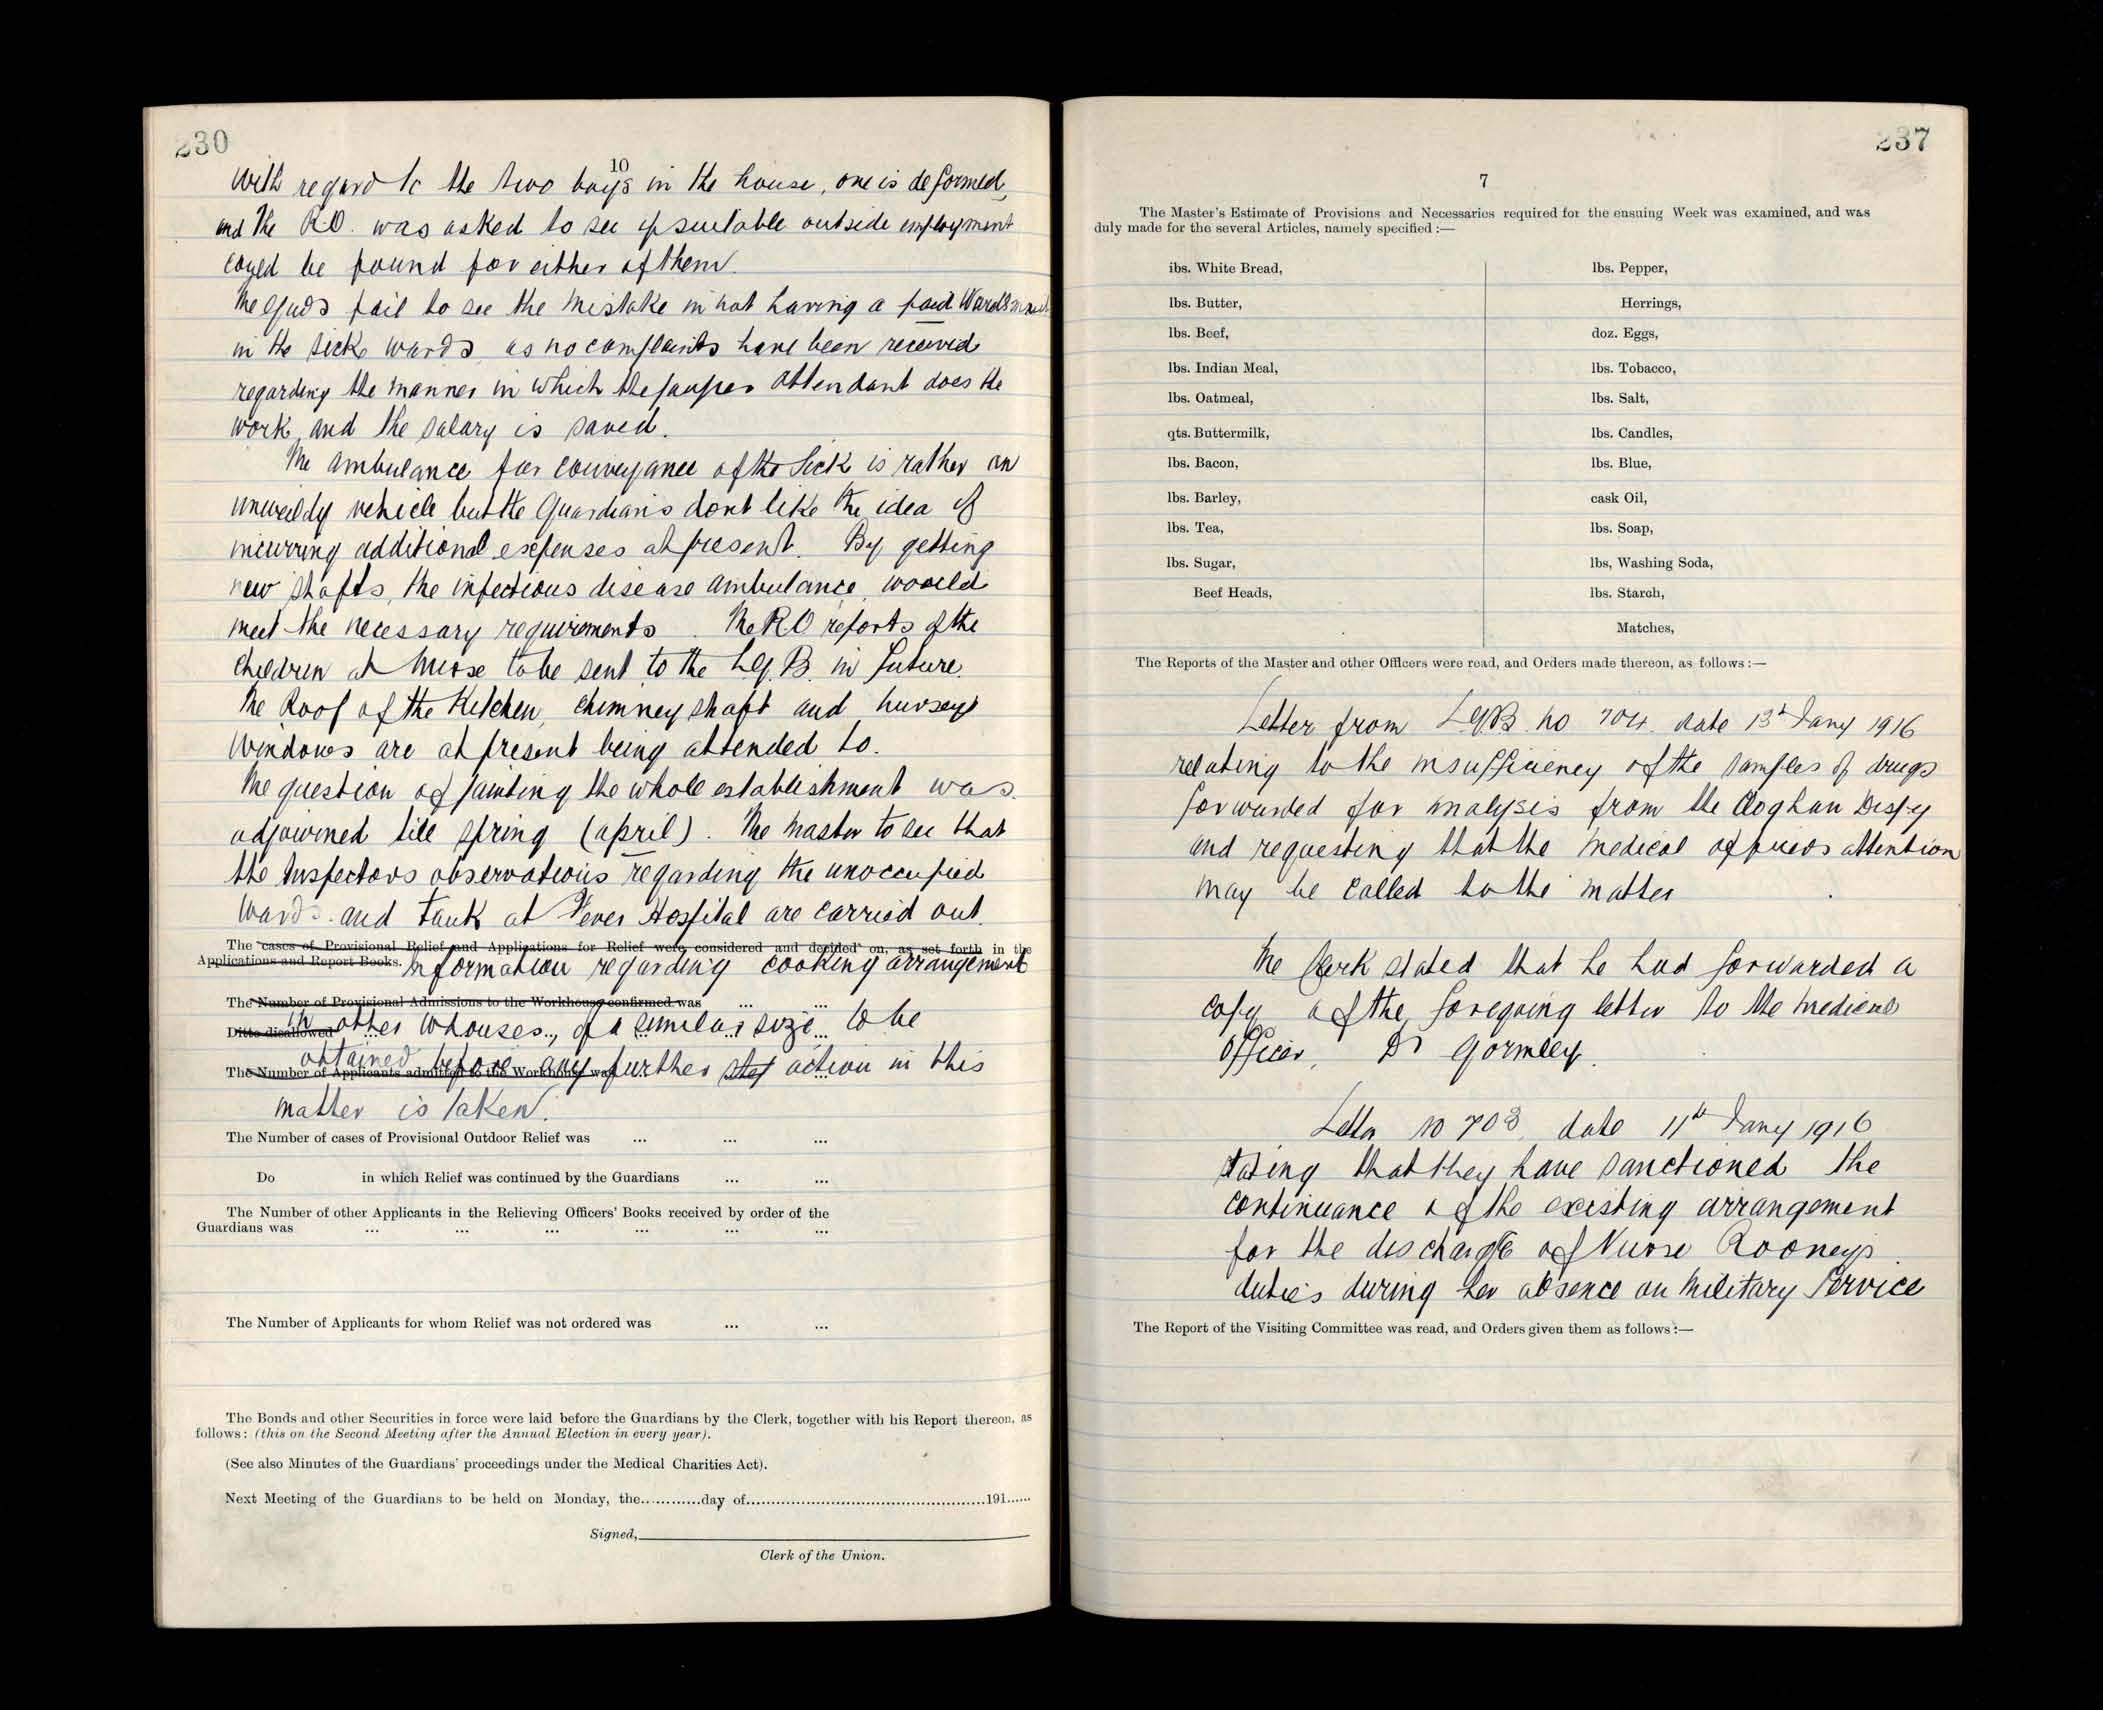 230
10
With regard to the two boys in the house, one is deformed,
and the R.O. was asked to see if suitable outside employment
could be found for either of them.
The Gds fail to see the mistake in not having a paid Wardsman
in the sick wards as no complaints have been received
regarding the manner in which the pauper attendant does the
work, and the salary is saved.
The ambulance for conveyance of the Sick is rather an
unweildy vehicle but the Guardians dont like the idea of
incurring additional expenses at present. By getting
new shafts, the infectious disease ambulance, would
meet the necessary requirements. The R.O reports of the
children at Nurse to be sent to the L.G.B. in future.
The Roof of the Kitchen, chimney shaft and nursery
windows are at present being attended to.
The question of painting the whole establishment was
adjourned till spring (april). The Master to see that
the Inspectors observations regarding the unoccupied
wards and tank at Fever Hospital are carried out.
The cases of Provisional Relief and Applications for Relief were considered and decided on, as set forth in the
Applications and Report Books. Information regarding cooking arrangement
The Number of Provisional Admissions to the Workhouse confirmed was ... ...
Ditto disallowed in other Whouses, of a similar size to be
obtained before any further step action in this
The Number of Applicants admitted to the Workhouse was
matter is taken.
The Number of cases of Provisional Outdoor Relief was ... ... ...
Do in which Relief was continued by the Guardians ... ...
The Number of other Applicants in the Relieving Officers' Books received by order of the
Guardians was ... ... ... ... ... ...
The Number of Applicants for whom Relief was not ordered was ... ...
The Bonds and other Securities in force were laid before the Guardians by the Clerk, together with his Report thereon, as
follows: (this on the Second Meeting after the Annual Election in every year).
(See also Minutes of the Guardians' proceedings under the Medical Charities Act).
Next Meeting of the Guardians to be held on Monday, the............day of................................................191......
Signed,
Clerk of the Union.
237
7
The Master's Estimate of Provisions and Necessaries required for the ensuing Week was examined, and was
duly made for the several Articles, namely specified :—
lbs. White Bread,
lbs. Butter,
lbs. Beef,
lbs. Indian Meal,
lbs. Oatmeal,
qts. Buttermilk,
lbs. Bacon,
lbs. Barley,
lbs. Tea,
lbs. Sugar,
Beef Heads,
lbs. Pepper,
Herrings,
doz. Eggs,
lbs. Tobacco,
lbs. Salt,
lbs. Candles,
lbs. Blue,
cask Oil,
lbs. Soap,
lbs, Washing Soda,
lbs. Starch,
Matches,
The Reports of the Master and other Officers were read, and Orders made thereon, as follows :—
Letter from L.G.B. no 704. date 13th Jany 1916
relating to the insufficiency of the samples of drugs
forwarded for analysis from the Cloghan Dispy
and requesting that the Medical officers attention
may be called to the matter
The Clerk stated that he had forwarded a
copy of the foregoing letter to the Medical
Officer, Dr Gormley.
Letter no 708, date 11th Jany 1916
stating that they have sanctioned the
continuance of the existing arrangement
for the discharge of Nurse Rooneys
duties during her absence on Military Service
The Report of the Visiting Committee was read, and Orders given them as follows :—